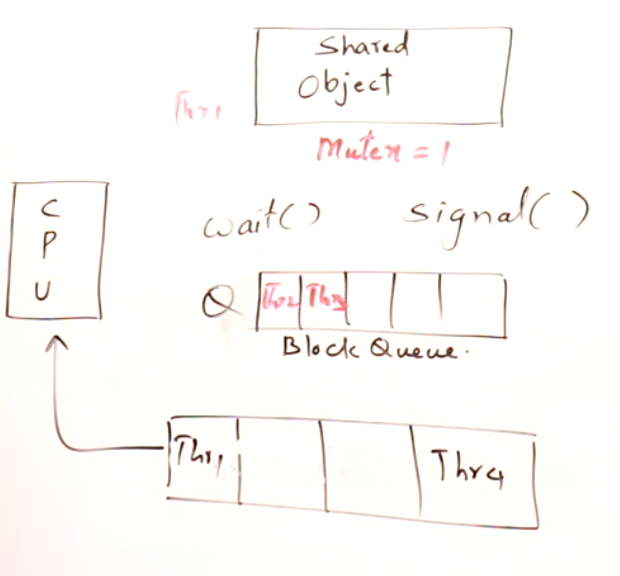 Shared
Object
Thr1
Mutex = 1
C
P
U
wait()
signal()
Q
Thr2
Thr3
Block Queue.
Thr1
Thr4